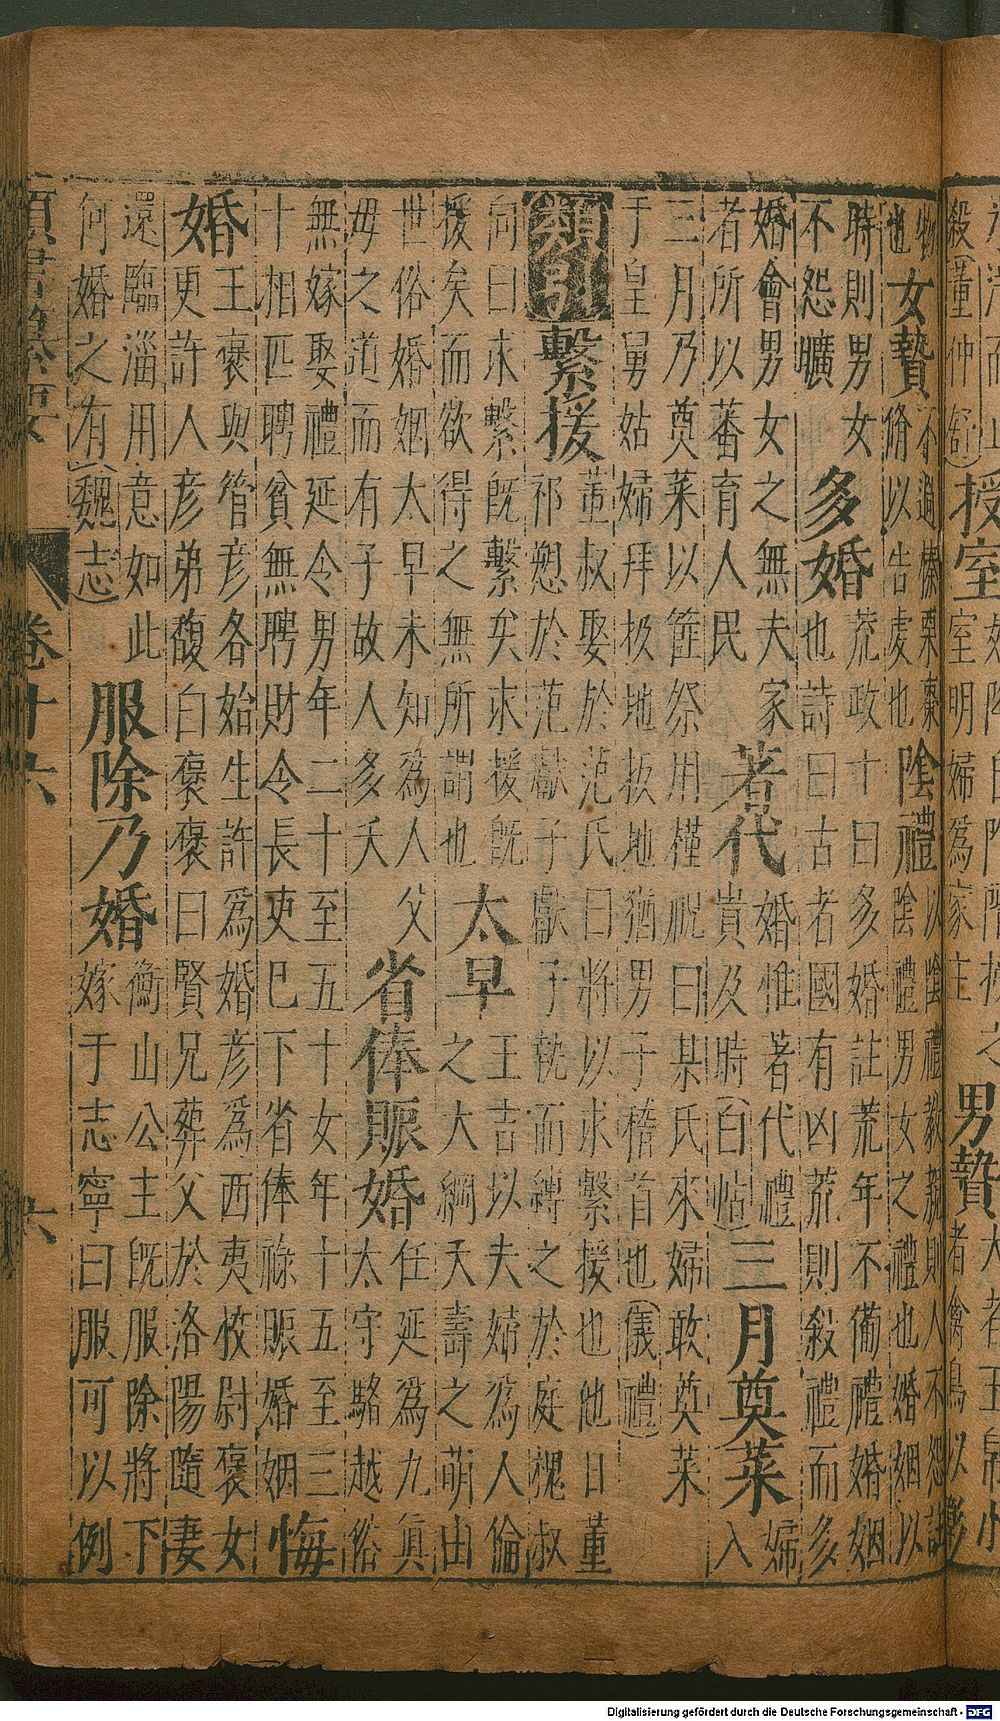 殺(董仲舒)授室
室明婦為家主
男贄
者禽鳥以彰
物
也
女贄
不過榛栗棗
脩以告虔也
陰禮
以陰禮教親則人不怨註
陰禮男女之禮也婚姻以
時則男女
不怨曠
多婚
荒政十曰多婚註荒年不備禮婚姻
也詩曰古者國有凶荒則殺禮而多
婚會男女之無夫家
者所以蕃育人民
著代
婚惟著代禮
貴及時(白帖)
三月奠菜
婦
入
三月乃奠菜以筐祭用槿祝曰某氏來婦敢奠菜
于皇舅姑婦拜扱地扱地猶男子稽首也(儀禮)
類引
繫援
董叔娶於范氏曰將以求繫援也他日董
祁愬於范獻子獻子執而縛之於庭槐叔
向曰求繫既繫矣求援既
援矣而欲得之無所謂也
太早
王吉以夫婦為人倫
之大綱夭壽之萌由
世俗婚姻太早未知為人父
母之道而有子故人多夭
省俸賑婚
任延為九眞
太守駱越俗
無嫁娶禮延令男年二十至五十女年十五至三
十相匹聘貧無聘財令長吏巳下省俸祿賑婚姻
悔婚
王褒與管彥各始生許為婚彥為西夷校尉褒女
更許人彥弟馥白褒褒曰賢兄葬父於洛陽隨妻
還臨淄用意如此
何婚之有(魏志)
服除乃婚
衡山公主既服除將下
嫁于志寧曰服可以例
類書纂要
卷十六
六
Digitalisierung gefördert durch die Deutsche Forschungsgemeinschaft - DFG